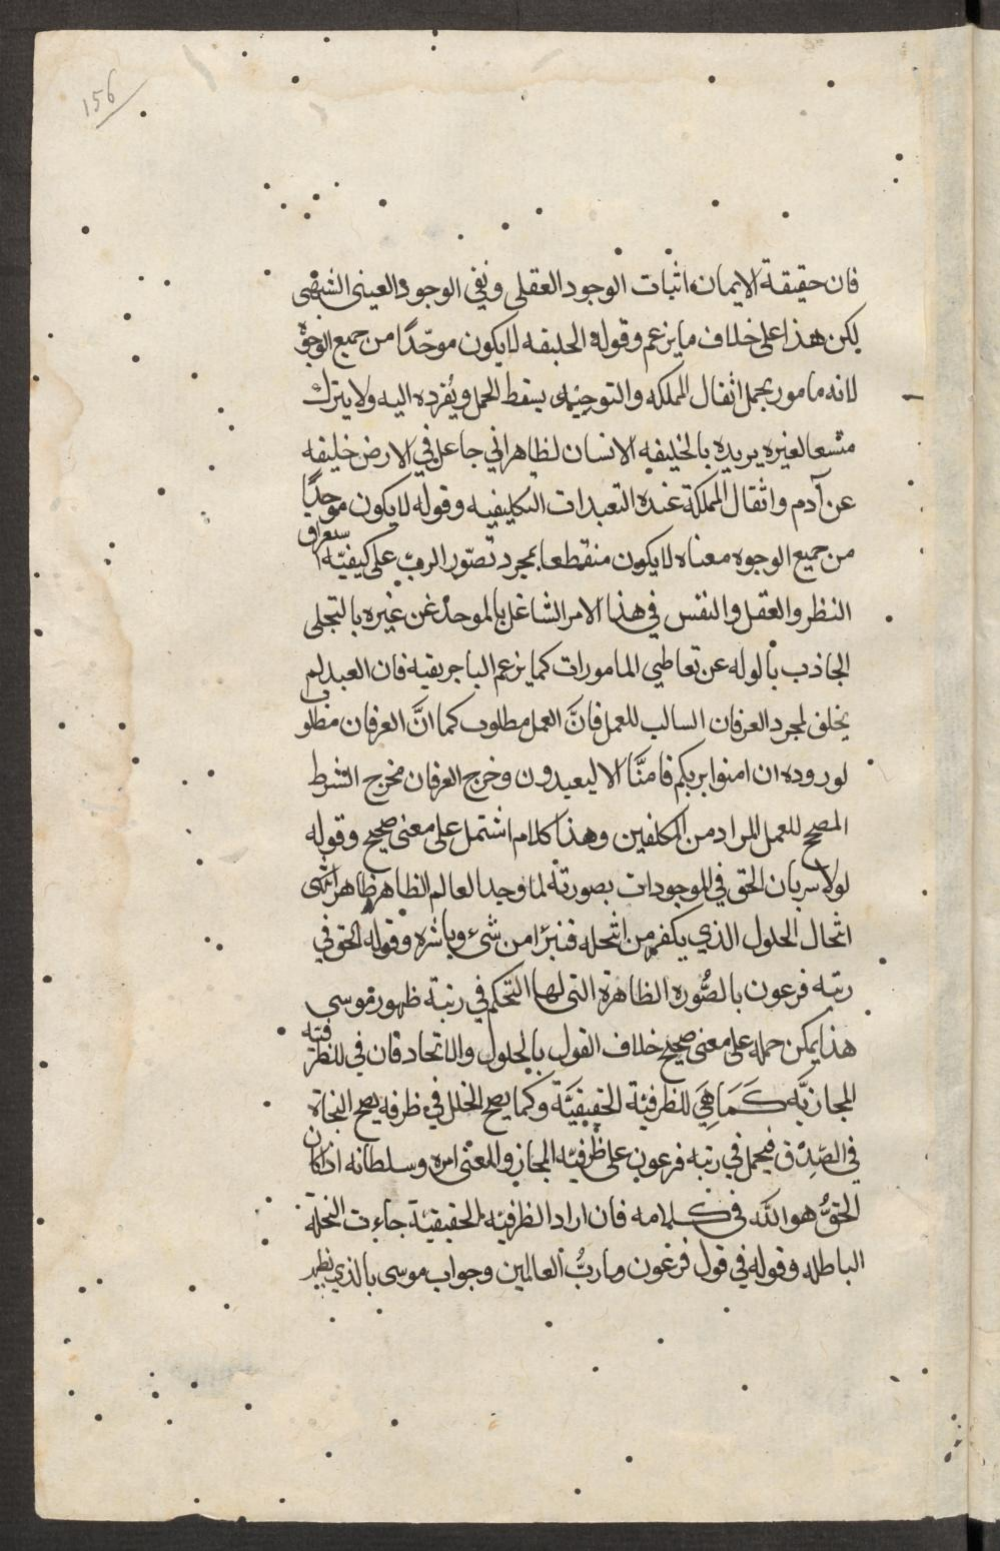 156
فان حقيقة الايمان اثبات الوجود العقلى ونفى الوجود العينى الشبهى
لكن هذا على خلاف ما يزعم وقوله الخليفه لا يكون موحّدًا من جميع الوجوه
لانه مامور بحمل اثقال المملكه والتوحيد يسقط الحمل ويُفرده اليه ولا يترك
متسعا لغيره يريد بالخليفه الانسان لظاهر اني جاعل في الارض خليفه
عن آدم واثقال المملكة عنده التعبدات التكليفيه وقوله لا يكون موحدًا
من جميع الوجوه معناه لا يكون منقطعا بمجرد تصوّر الربّ على كيفيّة استغراق
النظر والعقل والنفس في هذا الامر الشاغل بالموحد عن غيره بالتجلى
الجاذب بالوله عن تعاطي المامورات كما يزعم الباجريقية فان العبد لم
يخلق لمجرد العرفان السالب للعمل فانّ العمل مطلوب كما انّ العرفان مطلوب
لوروده ان امنوا بربكم فامنّا الا ليعبدون وخرج العرفان مخرج الشرط
المصحح للعمل المراد من المكلفين وهذا كلام اشتمل على معنى صحيح وقوله
لولا سريان الحق في الموجودات بصورته لما وجد العالم الظاهر ظاهر
انتحال الحلول الذي يكفر من انتحله فنبرّا من شىء وباشره وقوله الحق في
رتبه فرعون بالصُّوره الظاهرة التى لها التحكم في رتبة ظهور موسى
هذا يمكن حمله على معنى صحيح خلاف القول بالحلول والاتحاد فان في للظرفيّه
المجازيّه كَمَا هِيَ للظرفيّة الحقيقيّة وكما يصح الخلل في ظرفه يصح النجاة
في الصّدْق فيحمل في رتبه فرعون على ظرفيّه المجاز والمعنى امره وسلطانه اذا كان
الحقُّ هو الله في كلامه فان اراد الظرفيّه الحقيقيّة جاءت النحلة
الباطله وقوله في قول فرعون وما ربُّ العالمين وجواب موسى بالذي يظهر